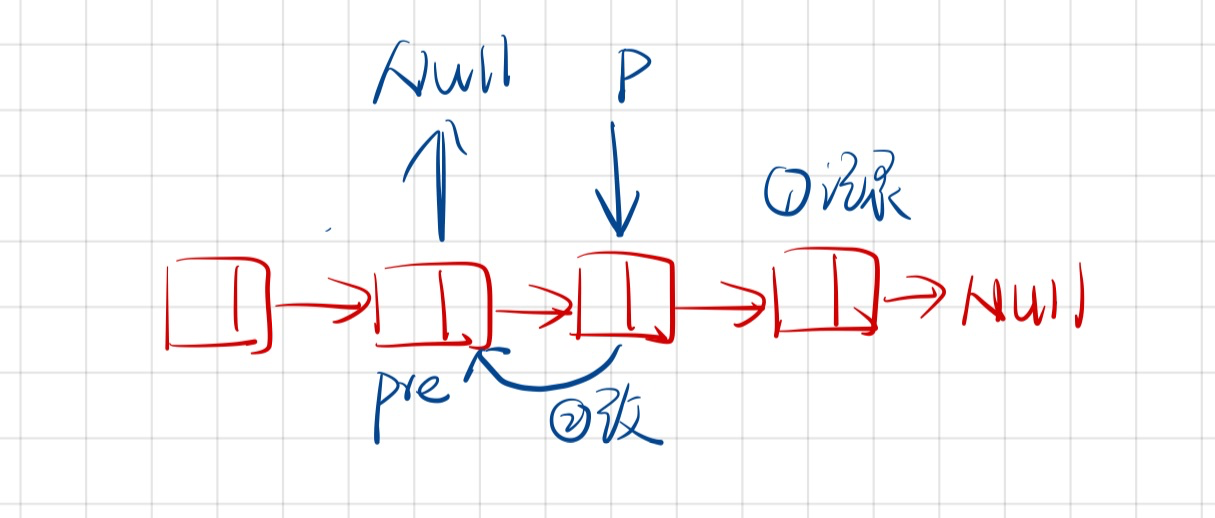 Null P
①记录
Null
pre
②改